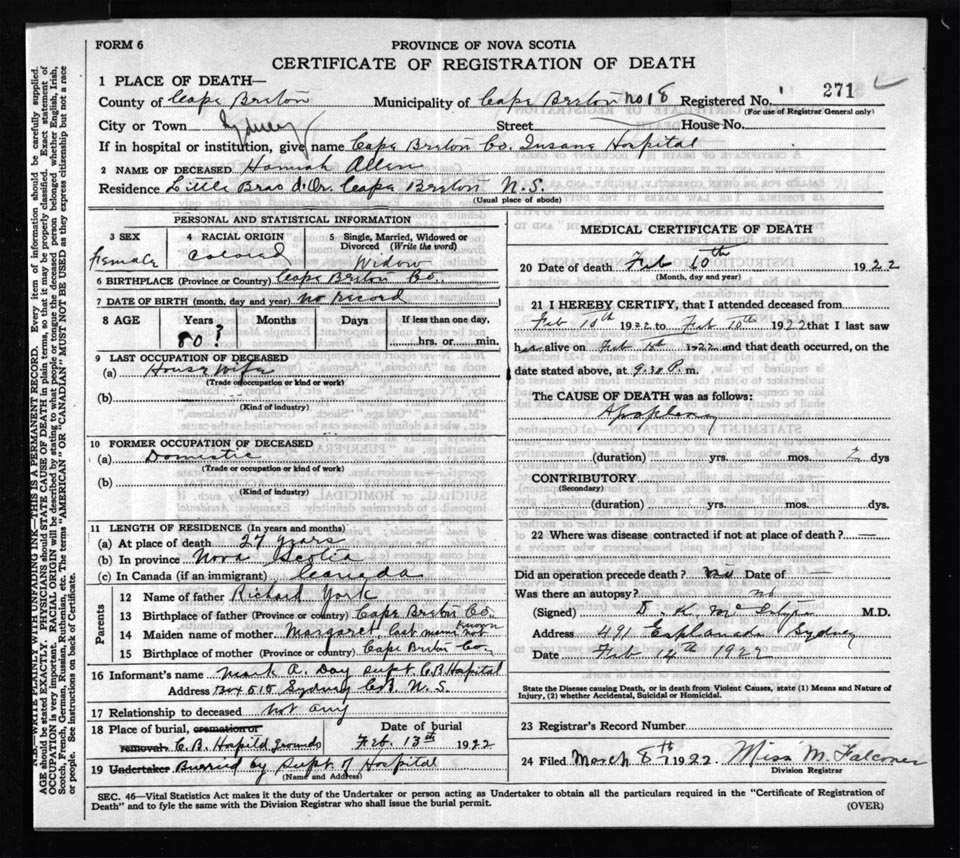 FORM 6
PROVINCE OF NOVA SCOTIA
CERTIFICATE OF REGISTRATION OF DEATH
1 PLACE OF DEATH—
County of Cape Breton Municipality of Cape Breton No 18 Registered No. 271
(For use of Registrar General only)
City or Town Sydney Street House No.
If in hospital or institution, give name Cape Breton Co. Insane Hospital
2 NAME OF DECEASED Hannah Allen
Residence Little Bras d'Or Cape Breton N.S.
(Usual place of abode)
PERSONAL AND STATISTICAL INFORMATION
3 SEX Female
4 RACIAL ORIGIN Colored
5 Single, Married, Widowed or Divorced (Write the word) Widow
6 BIRTHPLACE (Province or Country) Cape Breton Co.
7 DATE OF BIRTH (month, day and year) no record
8 AGE Years Months Days If less than one day,
80? hrs. or min.
9 LAST OCCUPATION OF DECEASED
(a) House Wife
(Trade or occupation or kind of work)
(b)
(Kind of industry)
10 FORMER OCCUPATION OF DECEASED
(a) Domestic
(Trade or occupation or kind of work)
(b)
(Kind of industry)
11 LENGTH OF RESIDENCE (In years and months)
(a) At place of death 27 years
(b) In province Nova Scotia
(c) In Canada (if an immigrant) Canada
Parents
12 Name of father Richard York
13 Birthplace of father (Province or country) Cape Breton Co.
14 Maiden name of mother Margaret, last name not known
15 Birthplace of mother (Province or country) Cape Breton Co.
16 Informant's name Mark A. Day Supt. C.B. Hospital
Address Box 515 Sydney C.B. N.S.
17 Relationship to deceased not any
18 Place of burial, cremation or removal C.B. Hospital grounds
Date of burial Feb. 13th 1922
19 Undertaker Burried by Supt. of Hospital
(Name and Address)
MEDICAL CERTIFICATE OF DEATH
20 Date of death Feb 10th 1922
(Month, day and year)
21 I HEREBY CERTIFY, that I attended deceased from
Feb 10th 1922 to Feb 10th 1922 that I last saw
her alive on Feb 10th 1922 and that death occurred, on the
date stated above, at 9.30 P. m.
The CAUSE OF DEATH was as follows:
Apoplexy
(duration) yrs. mos. 2 dys
CONTRIBUTORY
(Secondary)
(duration) yrs. mos. dys.
22 Where was disease contracted if not at place of death? —
Did an operation precede death? no Date of —
Was there an autopsy? no
(Signed) D. K. McIntyre M.D.
Address 491 Esplanade Sydney
Date Feb 14th 1922
State the Disease causing Death, or in death from Violent Causes, state (1) Means and Nature of
Injury, (2) whether Accidental, Suicidal or Homicidal.
23 Registrar's Record Number
24 Filed March 8th 1922 Miss M. Falconer
Division Registrar
SEC. 46—Vital Statistics Act makes it the duty of the Undertaker or person acting as Undertaker to obtain all the particulars required in the "Certificate of Registration of
Death" and to fyle the same with the Division Registrar who shall issue the burial permit.
(OVER)
N.B.—WRITE PLAINLY WITH UNFADING INK—THIS IS A PERMANENT RECORD. Every item of information should be carefully supplied.
AGE should be stated EXACTLY. PHYSICIANS should STATE CAUSE OF DEATH in plain terms, so that it may be properly classified. Exact statement of
OCCUPATION is very important. RACIAL ORIGIN will be described by stating to what people or tongue the deceased person belonged whether English, Irish,
Scotch, French, German, Russian, Ruthenian, etc. The terms "AMERICAN" or "CANADIAN" MUST NOT BE USED as they express citizenship but not a race
or people. See instructions on back of Certificate.